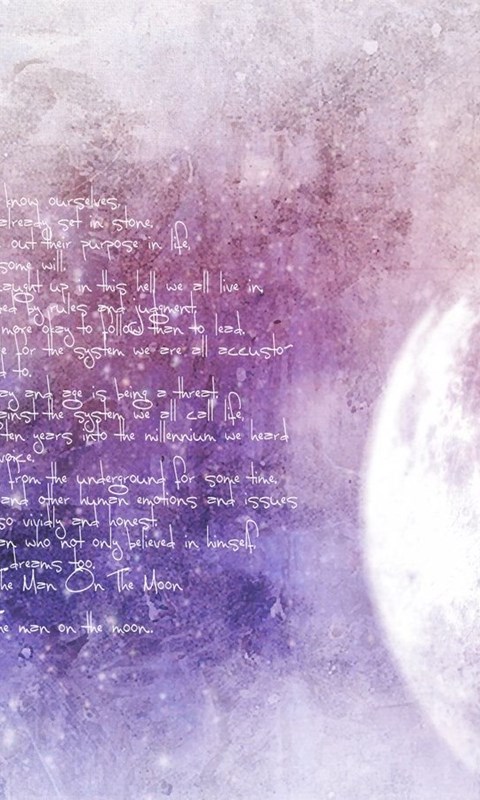 know ourselves.
already set in stone.
out their purpose in life,
some will.
caught up in this hell we all live in,
ed by rules and judgment.
more okay to follow than to lead.
e for the system we are all accusto
d to.
ay and age is being a threat.
ainst the system we all call life,
ten years into the millennium we heard
voice.
from the underground for some time.
and other human emotions and issues
so vividly and honest.
an who not only believed in himself,
dreams too.
he Man On The Moon
he man on the moon..